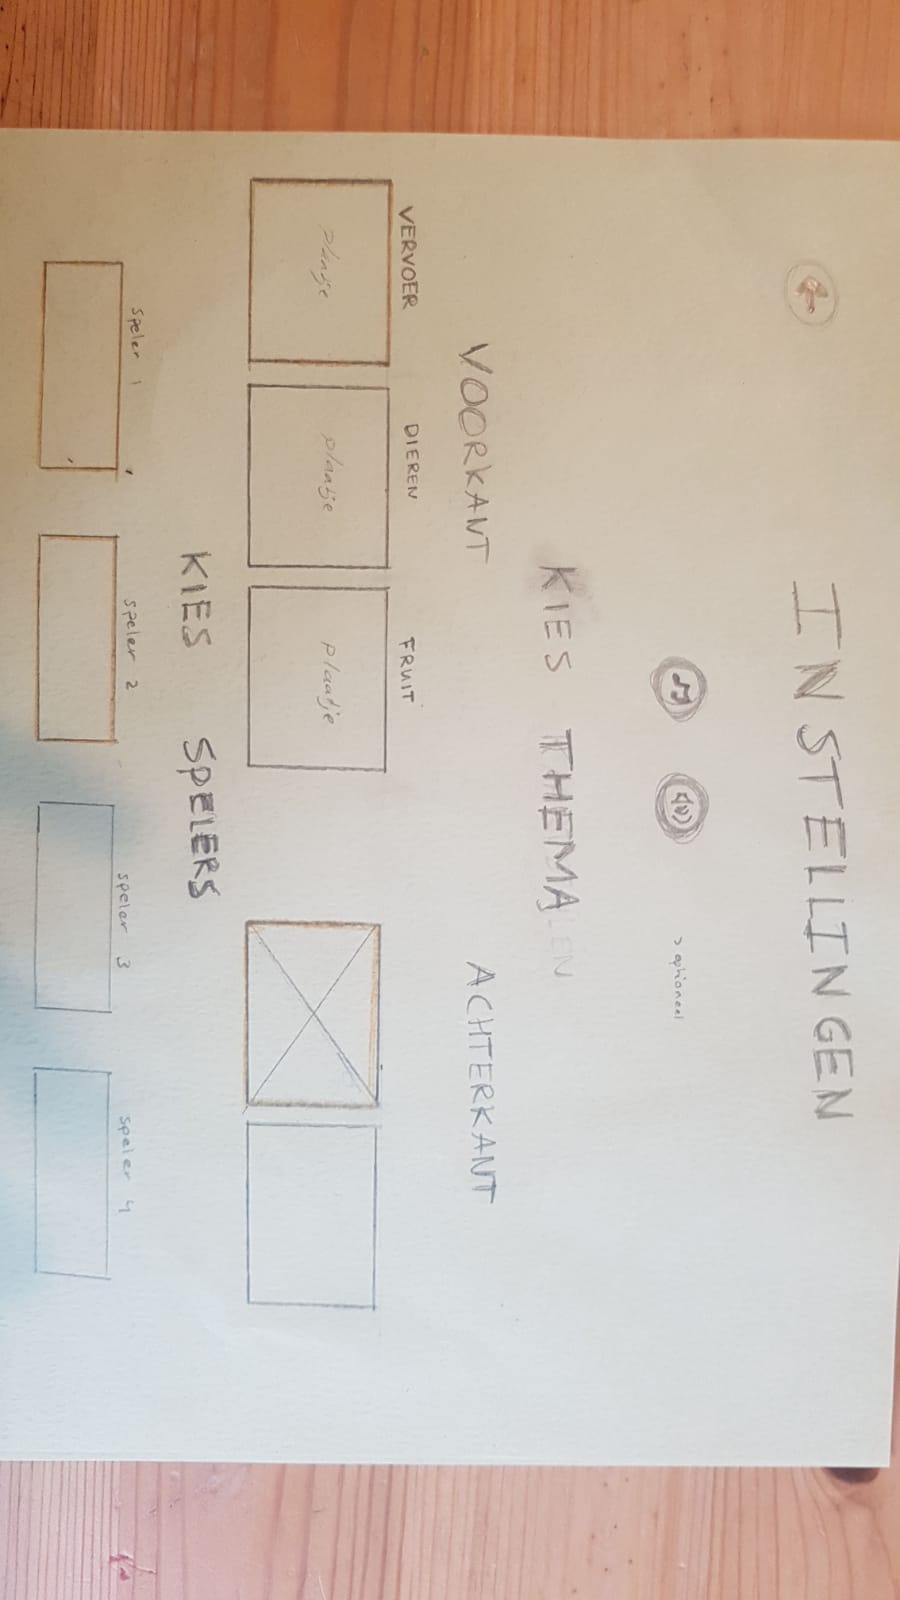 INSTELLINGEN
> optioneel
KIES THEMA
VOORKANT ACHTERKANT
VERVOER DIEREN FRUIT
plaatje plaatje plaatje
KIES SPELERS
speler 1 speler 2 speler 3 speler 4